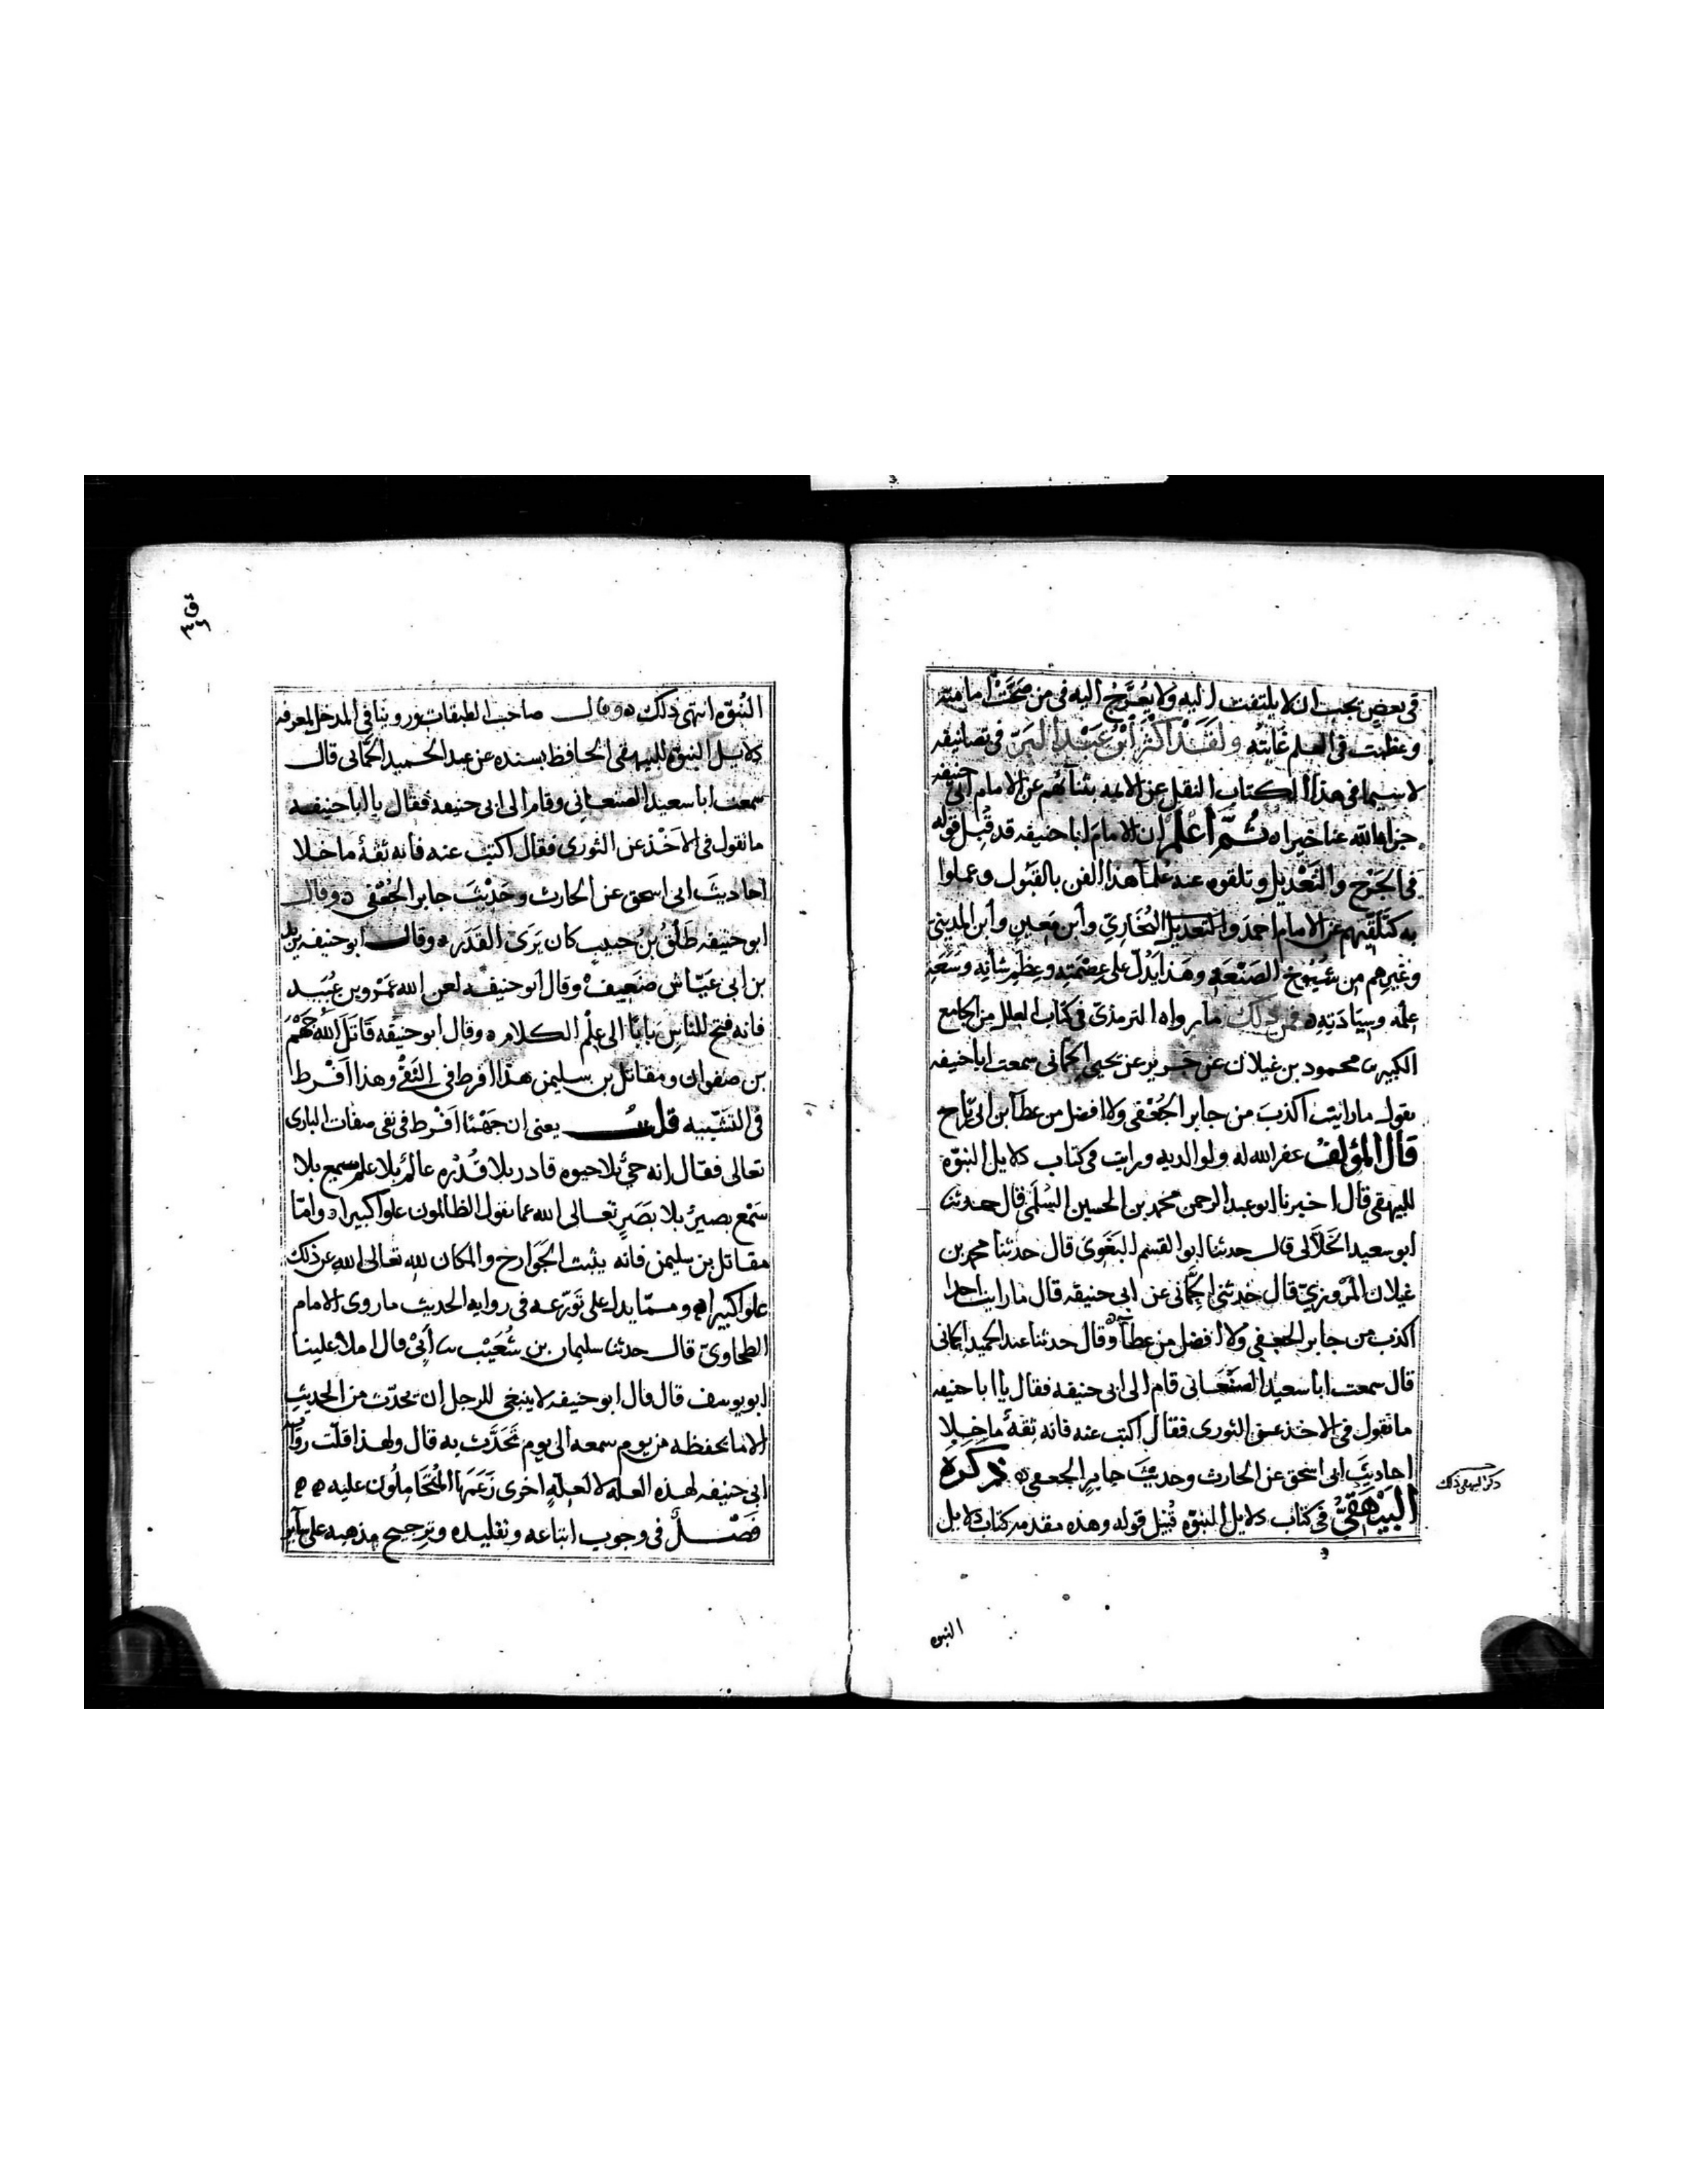 فى بعض يجب ان لا يلتفت اليه ولا يُعَرَّج اليه فى من صَحَّتْ امامته
وعظمت فى العلم غايَته ولَقَدْ اكْثَرَ ابْن عَبْد البَرّ فى تصانيفه
لا سيما فى هذا الكتاب النقل عن الايمه بثنآئهم عن الامام ابى حنيفه
جزاه الله عنا خيرا ه ثُمَّ اعْلَم ان الامام ابا حنيفه قد قُبِل قوله
فى الجَرْح والتَعْديل وتلقوه عنه علمآ هذا الفن بالقَبُول وعملوا
به كتَلَقِّيهم عن الامام احمد والبُخَارِي وابن مَعِين وابن المدينى
وغيرهم من شيُوخ الصَنْعَه وهَذا يَدُلّ على عِصْمَتِه وعِظَمِ شانِه وسَعَة
علمه وسِيَادَتِه ه فمن ذلك ما رواه الترمذى فى كتاب العلل من الجامع
الكبير محمود بن غيلان عن جرير عن يحيى الحمانى سمعت ابا حنيفه
يقول ما رايت اكذبَ من جابر الجُعْفى ولا افضل من عطآ بن ابى رَباح
قال المؤلف غفر الله له ولوالديه ورايت فى كتاب دلايل النبوّه
للبيهقى قال اخبرنا ابو عبد الرحمن محمد بن الحسين السُلَمى قال حدثنا
ابو سعيد الخَلَّالى قال حدثنا ابو القسم البَغَوى قال حدثنا محمد بن
غيلان المَرْوزيّ قال حدثنى الحِمَّانى عن ابى حنيفه قال ما رايت احدا
اكذب من جابر الجعفى ولا افضل من عطآ ه وقال حدثنا عبد الحميد الحمانى
قال سمعت ابا سعيد الصَنْعَانى قام الى ابى حنيفه فقال يا ابا حنيفه
ما تقول فى الاخذ عن الثورى فقال اكتب عنه فانه ثقةُ ما خلا
احاديثَ ابى اسحق عن الحارث وحديثَ جابر الجعفى ه ذكَرَه
البَيْهَقىُّ فى كتاب دلايل النبوّه قُبيل قوله وهذه مقدمه كتاب دلايل
ذكر البيهقى ذلك
النبوه
ق
٣٦
النُبوّه انتهى ذلك ه وقال صاحب الطبقات وروينا فى المدخل لمعرفه
دلايل النبوّه للبيهقى الحافظ بسنده عن عبد الحميد الحمَّانى قال
سمعت ابا سعيد الصنعانى وقام الى ابى حنيفه فقال يا ابا حنيفه
ما تقول فى الاَخْذ عن الثورى فقال اكتب عنه فانه ثقةُ ما خلا
احاديثَ ابى اسحق عن الحارث وحَدِيْثَ جابر الجُعْفى ه وقال
ابو حنيفه طَلْقُ بنُ حبيب كان يَرَى القَدَر ه وقال ابو حنيفه زيد
بن ابى عَيَّاش ضَعِيف ه وقال ابو حنيفه لعن الله عَمرو بن عُبَيد
فانه فتح للناس بابًا الى عِلْم الكلام ه وقال ابو حنيفه قَاتَل اللهُ جَهْمَ
بن صفوان ومقاتل بن سليمن هذا افرط فى النَفْى وهذا اَفْرط
فى التَشْبيه قلت يعنى ان جَهْمًا اَفْرط فى نفى صفات البارى
تعالى فقال انه حىٌّ بلا حيوه قادر بلا قُدْره عالمٌ بلا علم سميع بلا
سَمْع بصيرٌ بلا بَصَرٍ تعالى الله عما يقول الظالمون علوا كبيرا ه وامّا
مقاتل بن سليمن فانه يثبت الجَوَارح والمكان لله تعالى الله عن ذلك
علوا كبيرا ه وممّا يدل على تَوَرّعه فى روايه الحديث ما روى الامام
الطحاوىّ قال حدثنا سليمان بن شُعَيْب ثنا اَبِىْ قال املا علينا
ابو يوسف قال قال ابو حنيفه لا ينبغى للرجل ان يحدّث من الحديث
الا ما يحفظه من يوم سمعه الى يوم تَحَدَّث به قال ولهذا قلّت روآية
ابى حنيفه لهذه العله لا لعِلّةٍ اخرى زَعَمَها المُتَحَامِلُون عليه ه ه
فَصْلٌ فى وجوب اتباعه وتقليده وترجيح مذهبه على سآير